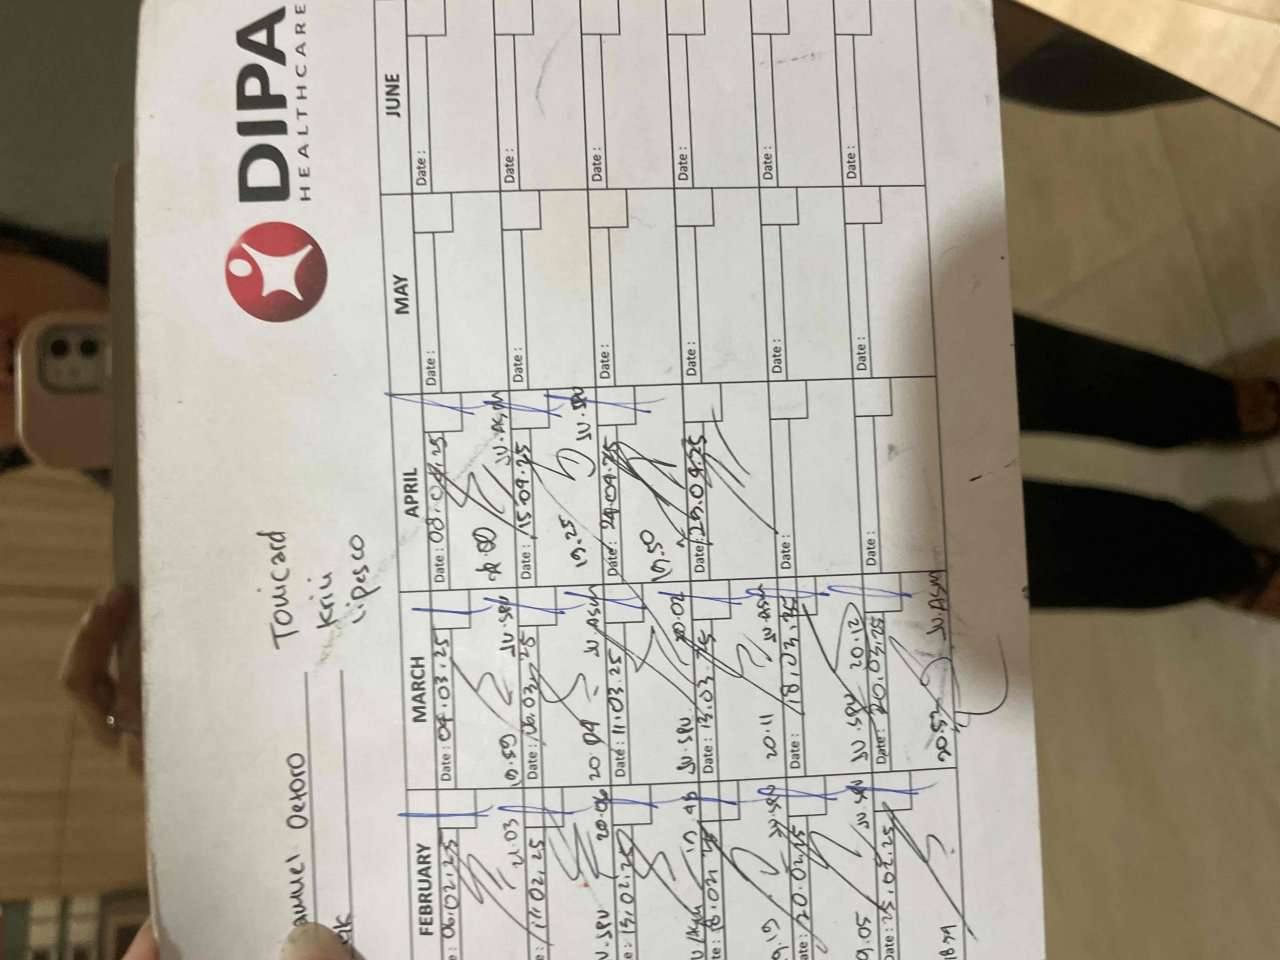 DIPA
HEALTHCARE
Oetoro
Tonicard
Krili
Lipesco
FEBRUARY MARCH APRIL MAY JUNE
06.02.25 Date: 04.03.25 Date: 08.04.25 Date: Date:
21.03 19.59 JU.SPU JU.ASM
11.02.25 Date: 06.03.25 Date: 15.04.25 Date: Date:
U.SPU 20.06 20.09 JU.ASM 19.25 JU.SPU
13.02.25 Date: 11.03.25 Date: 24.04.25 Date: Date:
JU.SPU 20.02 19.50
18.02.25 Date: 13.03.25 Date: 29.04.25 Date: Date:
9.19 JU.SPU 20.11 JU.ASM
20.02.25 Date: 18.03.25 Date: Date: Date:
9.05 JU.SPU JU.SPU 20.12
25.02.25 Date: 20.03.25 Date: Date: Date:
JU.ASM